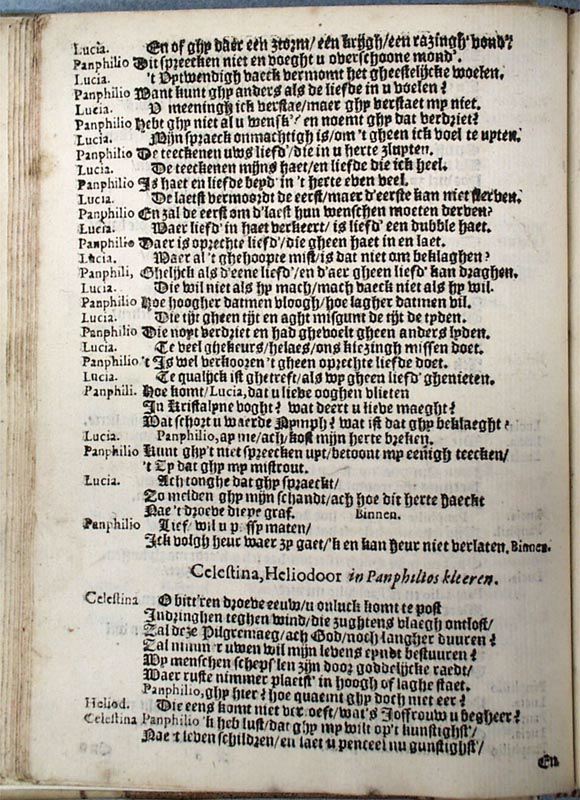 Lucia. En of ghy daer een storm/ een krijgh/ een razingh vond?
Panphilio Dit spreecken niet en voeght u overschoone mond.
Lucia. 't Uytwendigh vaeck vermomt het gheestelijcke woelen.
Panphilio Want kunt ghy anders als de liefde in u voelen?
Lucia. U meeningh ick verstae/ maer ghy verstaet my niet.
Panphilio Hebt ghy niet al u wensk? en noemt ghy dat verdriet?
Lucia. Mijn spraeck onmachtigh is/ om 't gheen ick voel te uyten.
Panphilio De teeckenen uws liefd'/ die in u herte sluyten.
Lucia. De teeckenen mijns haet/ en liefde die ick heel.
Panphilio Is haet en liefde beyd' in 't herte even veel.
Lucia. De laetst vermoordt de eerst/ maer d'eerste kan niet sterven.
Panphilio En zal de eerst om d'laest hun wenschen moeten derven?
Lucia. Waer liefd' in haet verkeert/ is liefd' een dubble haet.
Panphilio Daer is oprechte liefd'/ die gheen haet in en laet.
Lucia. Maer al 't ghehoopte mist/ is dat niet om beklaghen?
Panphili, Ghelijck als d'eene liefd'/ en d'aer gheen liefd' kan draghen.
Lucia. Die wil niet als hy mach/ mach vaeck niet als hy wil.
Panphilio Hoe hoogher datmen vloogh/ hoe lagher datmen vil.
Lucia. Die tijt gheen tijt en aght misgunt de tijt de tyden.
Panphilio Die noyt verdriet en had ghevoelt gheen anders lyden.
Lucia. Te veel ghekeurs/ helaes/ ons kiezingh missen doet.
Panphilio 't Is wel verkooren 't gheen oprechte liefde doet.
Lucia. Te qualijck ist ghetreft/ als wy gheen liefd' ghenieten.
Panphili. Hoe komt/ Lucia, dat u lieve ooghen vlieten
In Kristalyne voght? wat deert u lieve maeght?
Wat schort u waerde Nymph? wat ist dat ghy beklaeght?
Lucia. Panphilio, ay me/ ach/ kost mijn herte breken.
Panphilio Kunt ghy't niet spreecken uyt/ betoont my eenigh teecken/
't Zy dat ghy my mistrout.
Lucia. Ach tonghe dat ghy spraeckt/
Zo melden ghy mijn schandt/ ach hoe dit herte haeckt
Nae 't droeve diepe graf. Binnen.
Panphilio Lief wil u maten/
Ick volgh heur waer zy gaet/ 'k en kan heur niet verlaten. Binnen.
Celestina, Heliodoor in Panphilios kleeren.
Celestina O bitt'ren droeve eeuw/ u onluck komt te post
Indringhen teghen wind/ die zughtens vlaegh ontlost/
Zal deze Pilgremaeg/ ach God/ noch langher duuren?
Zal nimm'r uwen wil mijn levens eyndt bestuuren?
Wy menschen schepslen zijn door goddelijcke raedt/
Waer ruste nimmer plaetst in hoogh of laghe staet.
Panphilio, ghy hier? hoe quaemt ghy doch niet eer?
Heliod. Die eens komt niet vertoeft/ wat's Joffrouw u begheer?
Celestina Panphilio 'k heb lust/ dat ghy my wilt op't kunstighst'/
Nae 't leven schildren/ en laet u penceel nu gunstighst'/
En